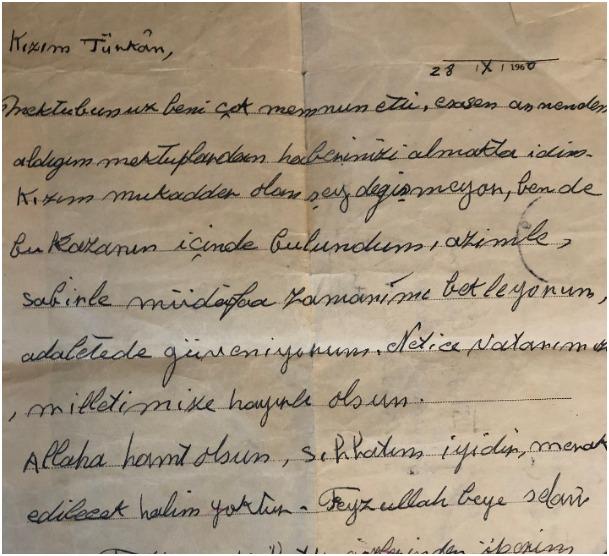 Kızım Türkân,
28 / X / 1960
Mektubunuz beni çok memnun etti, esasen annenden
aldığım mektuplardan haberinizi almakta idim.
Kızım mukadder olan şey değişmeyor, ben de
bu kazanın içinde bulundum, azimle,
sabirle müdafaa zamanımı bekleyorum,
adaletede güveniyorum. Netice Vatanımız
, milletimize hayırlı olsun.
Allaha hamt olsun, sıhhatım iyidir, merak
edilecek halim yoktur. Feyzullah beye selâm
gözlerinden öperim